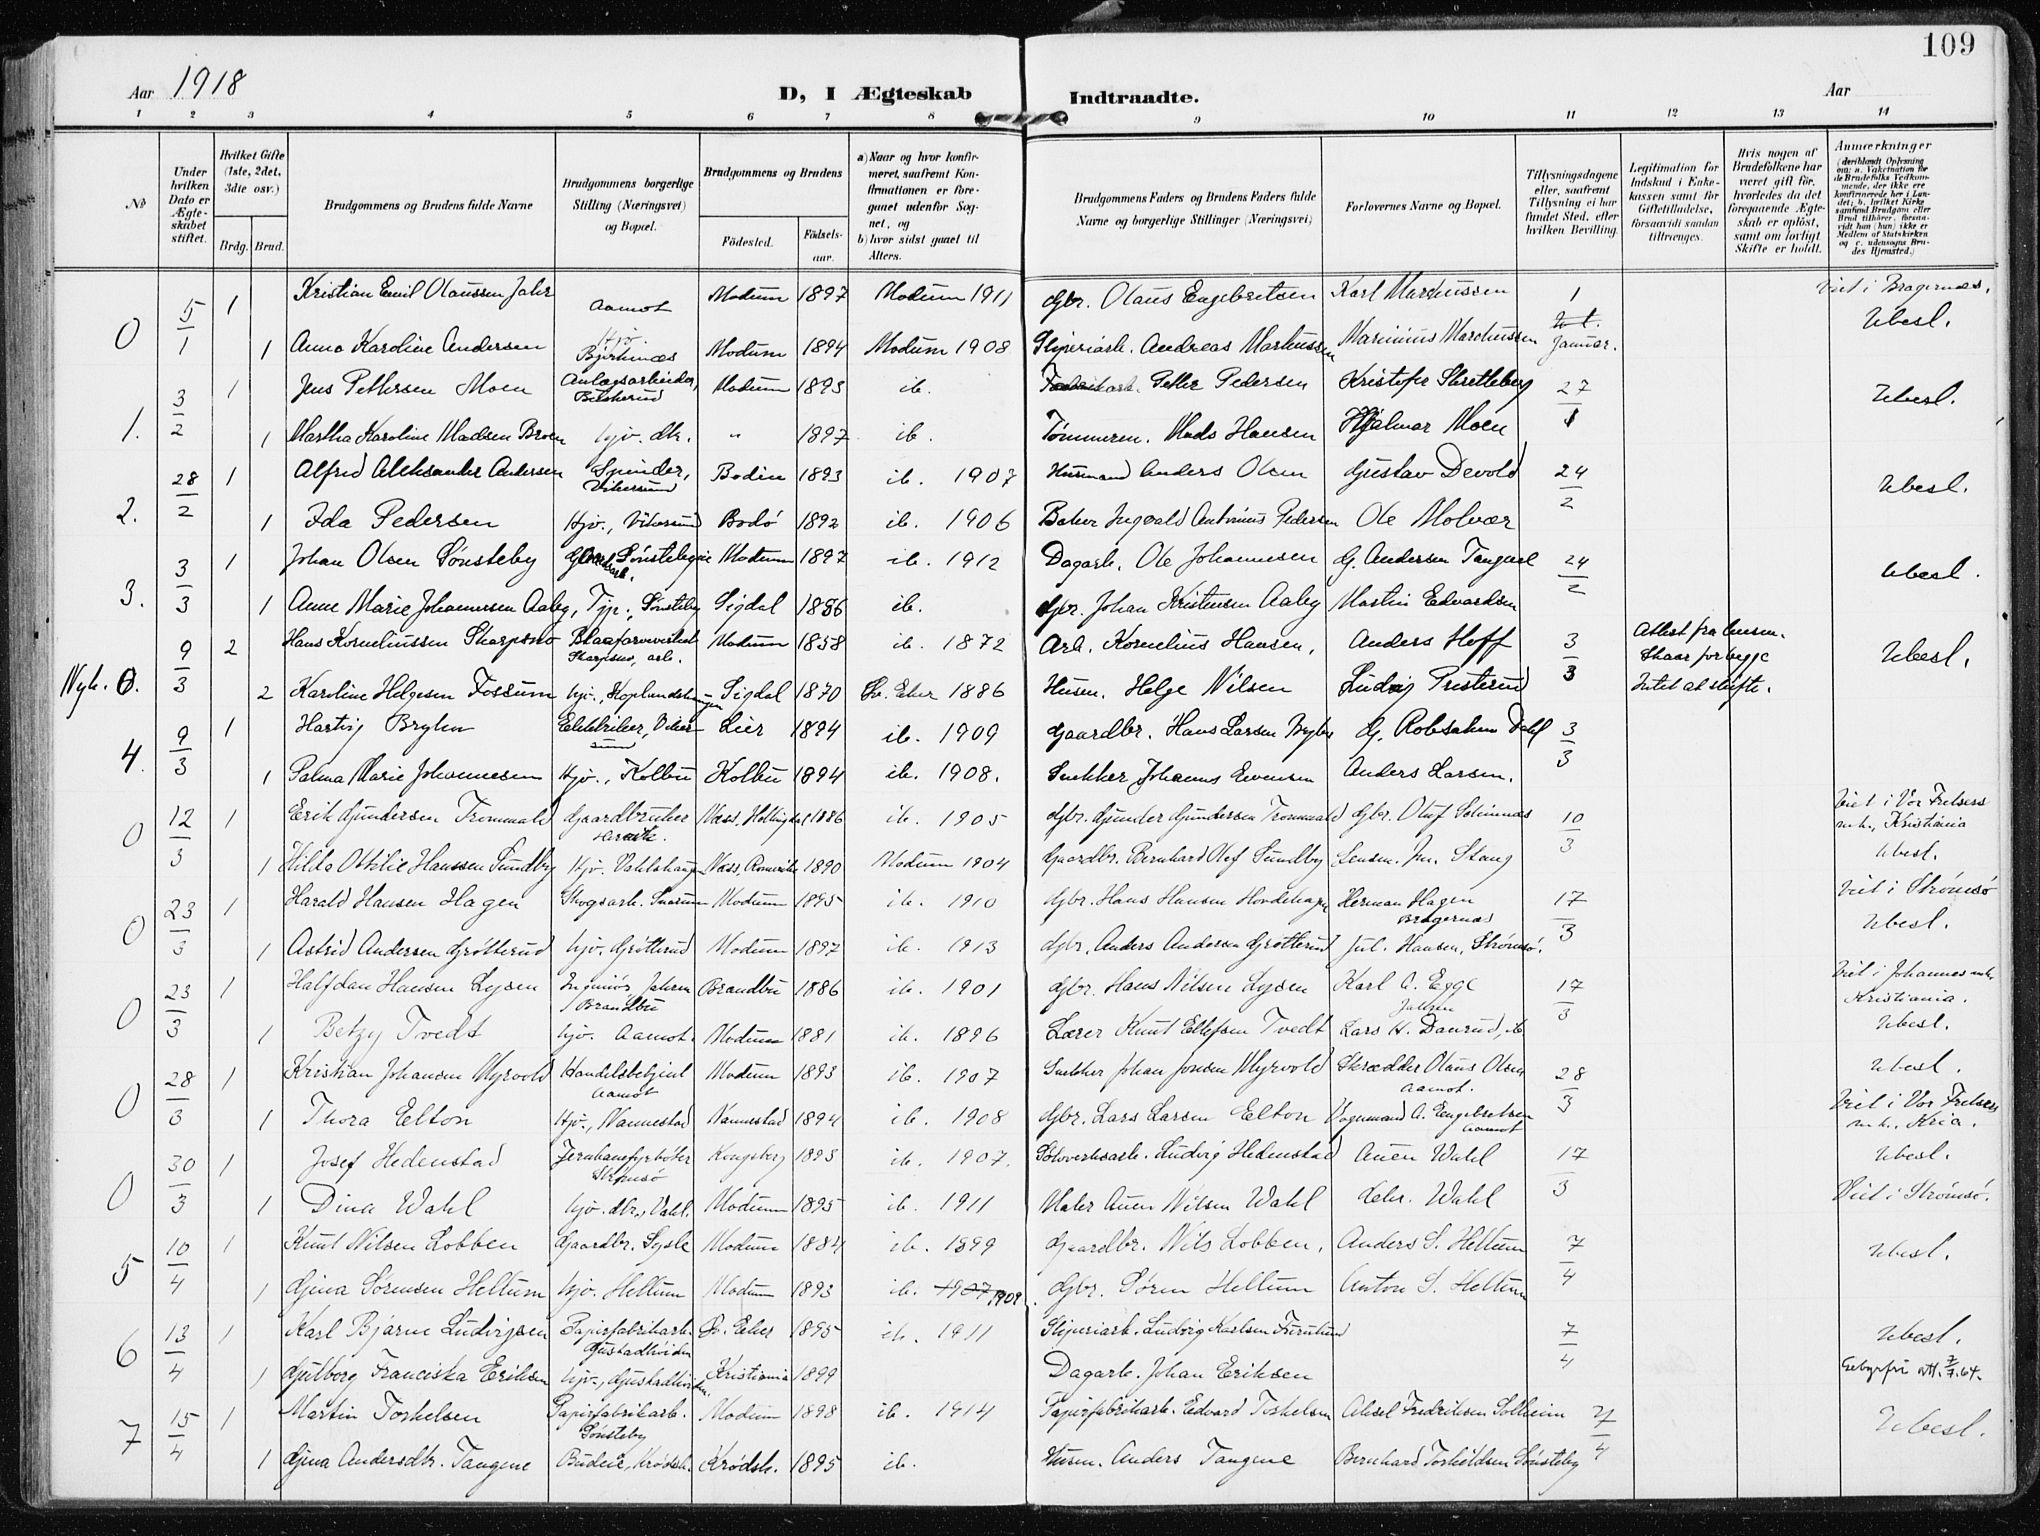 109
Aar 1918
D, I Ægteskab Indtraadte.
Aar
1 2 3 4 5 6 7 8 9 10 11 12 13 14
No
Under hvilken Dato er Ægteskabet stiftet.
Hvilket Gifte (1ste, 2det, 3die osv.)
Brdg. Brud.
Brudgommens og Brudens fulde Navne
Brudgommens borgerlige Stilling (Næringsvei) og Bopæl.
Brudgommens og Brudens
Födested. Födsels-aar.
a) Naar og hvor konfirmeret, saafremt Konfirmationen er foregaaet udenfor Sognet, og
b) hvor sidst gaaet til Alters.
Brudgommens Faders og Brudens Faders fulde Navne og borgerlige Stillinger (Næringsvei)
Forlovernes Navne og Bopæl.
Tillysningsdagene eller, saafremt Tillysning ei har fundet Sted, efter hvilken Bevilling.
Legitimation for Indskud i Enkekassen samt for Giftetilladelse, forsaavidt saadan tiltrænges.
Hvis nogen af Brudefolkene har været gift før, hvorledes da det foregaaende Ægteskab er oplöst, samt om lovligt Skifte er holdt.
Anmærkninger
0 5/1 1 Kristian Emil Olaussen Jahr Aamot Modum 1897 Modum 1911 Gbr. Olaus Engebretsen Karl Markussen 1 Januar. Viet i Bragernæs. Ubesl.
1 Anna Karoline Andersen Hjv. Bjerknæs Modum 1894 Modum 1908 Sliperiarb. Andreas Markussen Marinius Markussen
1. 3/2 1 Jens Pettersen Moen Anlægsarbeider, Modum 1893 ib. Petter Pedersen Kristofer Skretteberg 27/1 Ubesl.
1 Martha Karoline Madsen Broen hjv. dk. " 1897 ib. Tømmerm. Mads Hansen Hjalmar Moen
2. 28/2 1 Alfred Aleksander Andersen Spinder, Vikersund Bodin 1893 ib. 1907 Husmand Anders Olsen Gustav Devold 24/2 Ubesl.
1 Ida Pedersen Hjv., Vikersund Bodö 1892 ib. 1906 Baker Ingvald Antonius Pedersen Ole Molvær
3. 3/3 1 Johan Olsen Sønsteby Modum 1897 ib. 1912 Dagarb. Ole Johannesen G. Andersen Tangen 24/2 Ubesl.
1 Anne Marie Johannesen Aaby, Tjp., Sønsteby Sigdal 1886 ib. Gbr. Johan Kristensen Aaby Martin Edvardsen
Nyk. 0. 9/3 2 Hans Korneliussen Skarpsno Blaafarveverket Skarpsno, arb. Modum 1858 ib. 1872 Arb. Kornelius Hansen, Anders Hoff 3/3 Attest fra lensm. Skaar for begge Ubesl.
2 Karoline Helgesen Fossum hjv., Sigdal 1870 Ø. Eker 1886 Husm. Helge Nilsen Ludvig Presterud Intet at skifte.
4. 9/3 1 Hartvig Bryhn Elektriker, Vikersund Lier 1894 ib. 1909 Gaardbr. Hans Larsen Bryhn G. Robsahm Dahl 3/3
1 Palma Marie Johannesen Hjv., Kolbu Kolbu 1894 ib. 1908. Snekker Johannes Evensen Anders Larsen.
0 12/3 1 Erik Gundersen Trommald Gaardbruker Næss, Hallingdal 1886 ib. 1905 Gbr. Gunder Gundersen Trommald Gbr. Oluf Solimnæs 10/3 Viet i Vor Frelsers mk., Kristiania Ubesl.
1 Hilda Ottilie Hanssen Sundby Hjv. Næss, Romerike 1890 Modum 1904 Gaardbr. Bernhard Olef Sundby Lensm. Jn. Stang
0 23/3 1 Harald Hansen Hagen Skogsarb. Snarum Modum 1895 ib. 1910 Gbr. Hans Hansen Hovdehagen Herman Hagen Bragernæs 17/3 Viet i Strømsö Ubesl.
1 Astrid Andersen Grøtterud hjv. Grøtterud Modum 1897 ib. 1913 Gbr. Anders Andersen Grøtterud Jul. Hansen, Strømsö.
0 23/3 1 Halfdan Hansen Lysen Ingeniör, Jahren Brandbu Brandbu 1886 ib. 1901 Gbr. Hans Nilsen Lysen Karl A. Egge Jahren 17/3 Viet i Johannes mk. Kristiania. Ubesl.
1 Betzy Tvedt hjv. Aamot. Modum 1881 ib. 1896 Lærer Knut Ellefsen Tvedt Lars H. Danrud, ib
0 28/3 1 Kristian Johansen Myrvold Handelsbetjent Aamot Modum 1893 ib. 1907 Snekker Johan Jonsen Myrvold Skrædder Olaus Olsen Aamot. 28/3 Ubesl.
1 Thora Elton Hjv., Nannestad Nannestad 1894 ib. 1908 Gbr. Lars Larsen Elton Vognmand A. Engebretsen Aamot Viet i Vor Frelsers mk., Kria.
0 30/3 1 Josef Hedenstad Jernbanefyrböter Strömsö Kongsberg 1893 ib. 1907. Sölvverksarb. Ludvig Hedenstad Auen Wahl 17/3 Ubesl.
1 Dina Wahl hjv. dk., Vahl. Modum 1895 ib. 1911 Maler Auen Nilsen Wahl Wahl Viet i Strømsö.
5 10/4 1 Knut Nilsen Lobben Gaardbr. Sysle Modum 1884 ib. 1899 Gaardbr. Nils Lobben, Anders S. Hellum 7/4 Ubesl.
1 Gina Sørensen Hellum hjv. Hellum Modum 1893 ib. 1907 1909. Gbr. Sören Hellum Anton S. Hellum
6 13/4 1 Karl Bjarne Ludvigsen Papirfabrikarb. Gustadhöiden Ø. Eker 1895 ib. 1911 Sliperiarb. Ludvig Karlsen Furulund 7/4 Ubesl.
1 Gulborg Franciska Eriksen hjv., Gustadhöiden. Kristiania 1899 Dagarb. Johan Eriksen Gebyrfri att. 7/7.64.
7 15/4 1 Martin Torkelsen Papirfabrikarb. Sönsteby Modum 1898 ib. 1914 Papirfabrikarb. Edvard Torkelsen Aksel Fredriksen Solheim 7/4 Ubesl.
1 Gina Andersdtr. Tangene Budeie, Krödsh. Krödsh. 1895 ib. Husm. Anders Tangene Bernhard Torkeldsen Sönsteby